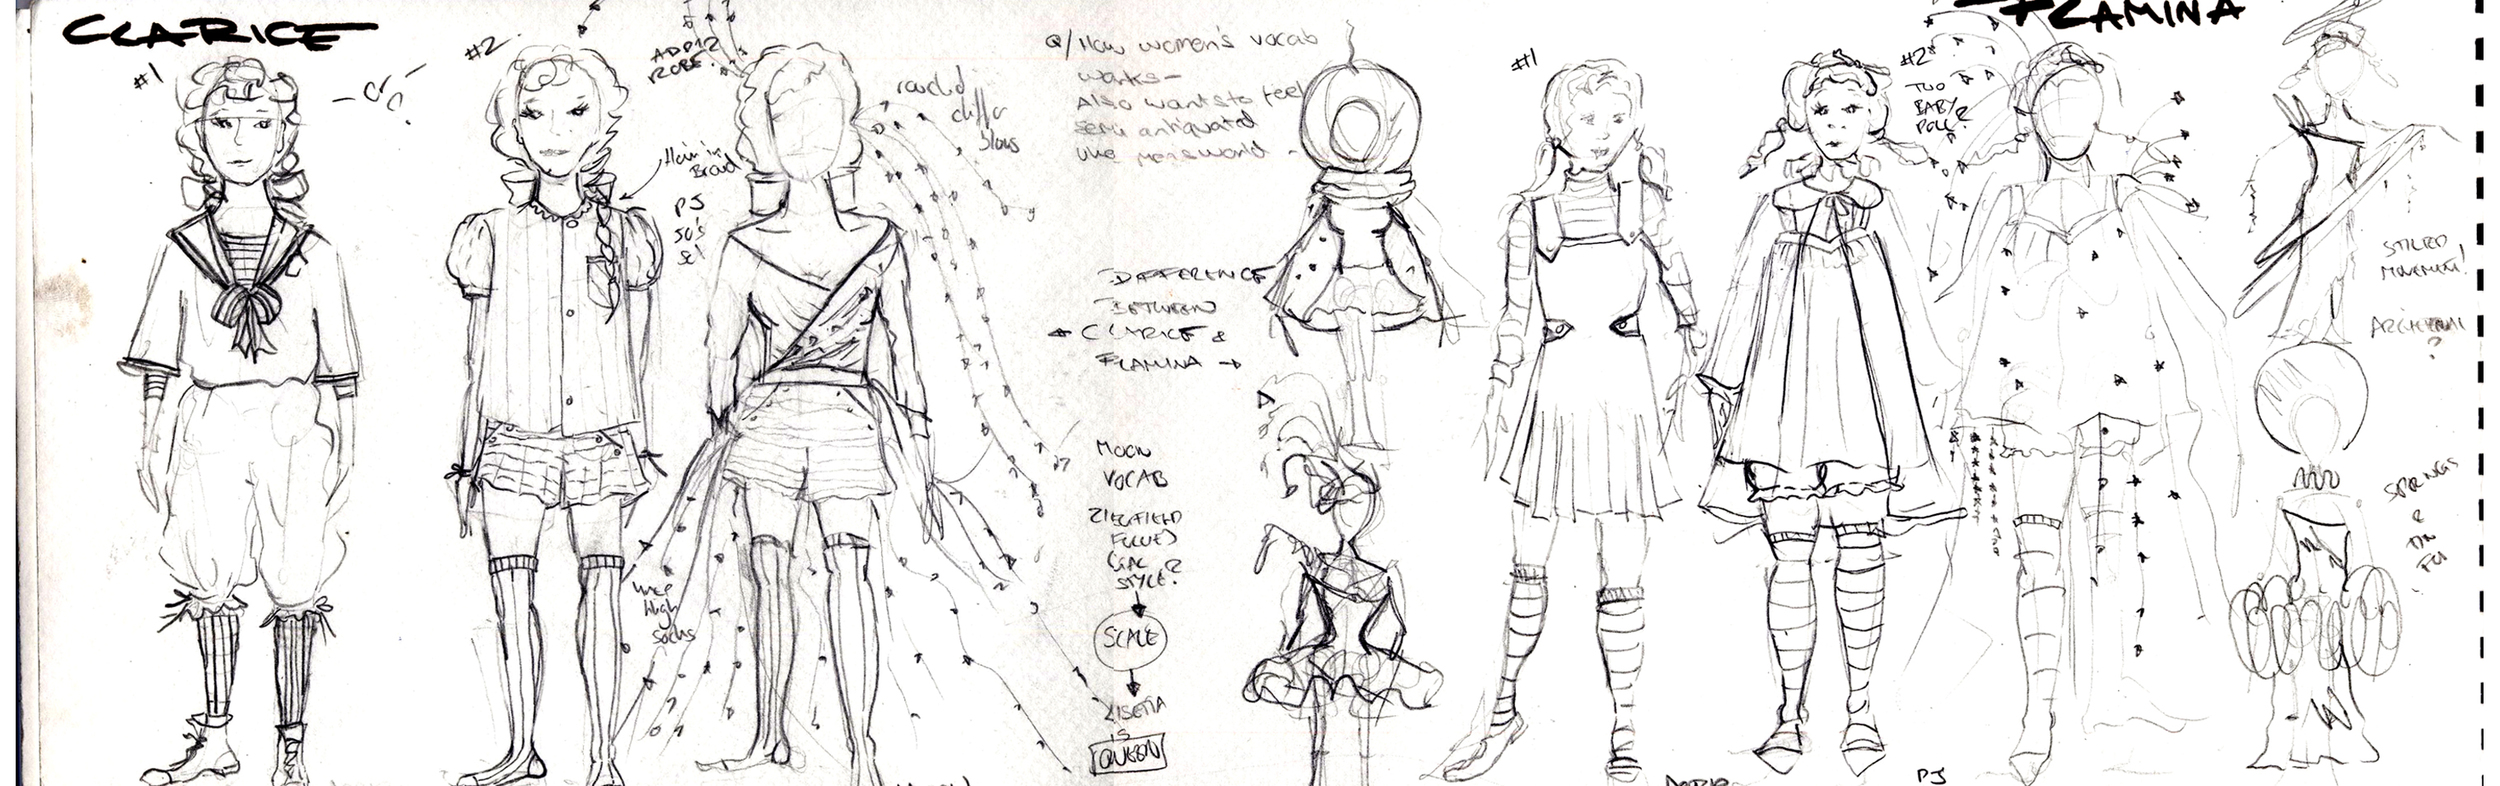 CLARICE
#1
- or?
#2
ADD 12
ROBE?
Hair in
Braid
PJ
50's
set
knee
high
socks
Q/How women's vocab
works -
Also wants to feel
semi antiquated
like men's world -
DIFFERENCE
BETWEEN
← CLARICE &
FLAMINA →
MOON
VOCAB
ZIEGFIELD
STYLE?
SCALE
LISETTA
IS
QUEEN
FLAMINA
#1
#2
TWO
BABY
DOLL?
STILTED
MOVEMENT!
?
SPRINGS
&
PJ